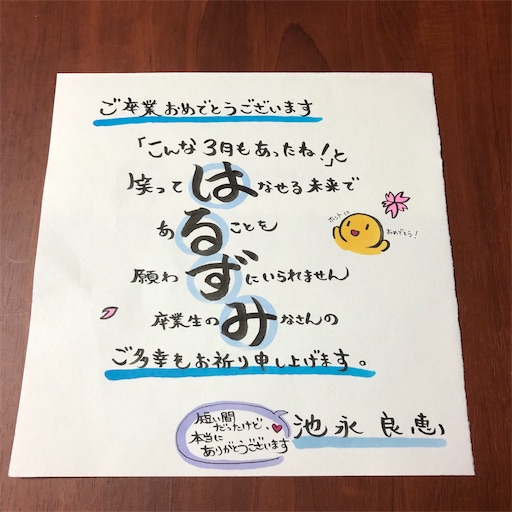 ご卒業おめでとうございます
「こんな3月もあったね!」と
笑ってはなせる未来で
あることを
願わずにいられません
卒業生のみなさんの
ご多幸もお祈り申し上げます。
ホントに
おめでとう!
短い間
だったけど、
本当に
ありがとうございます
池永良恵